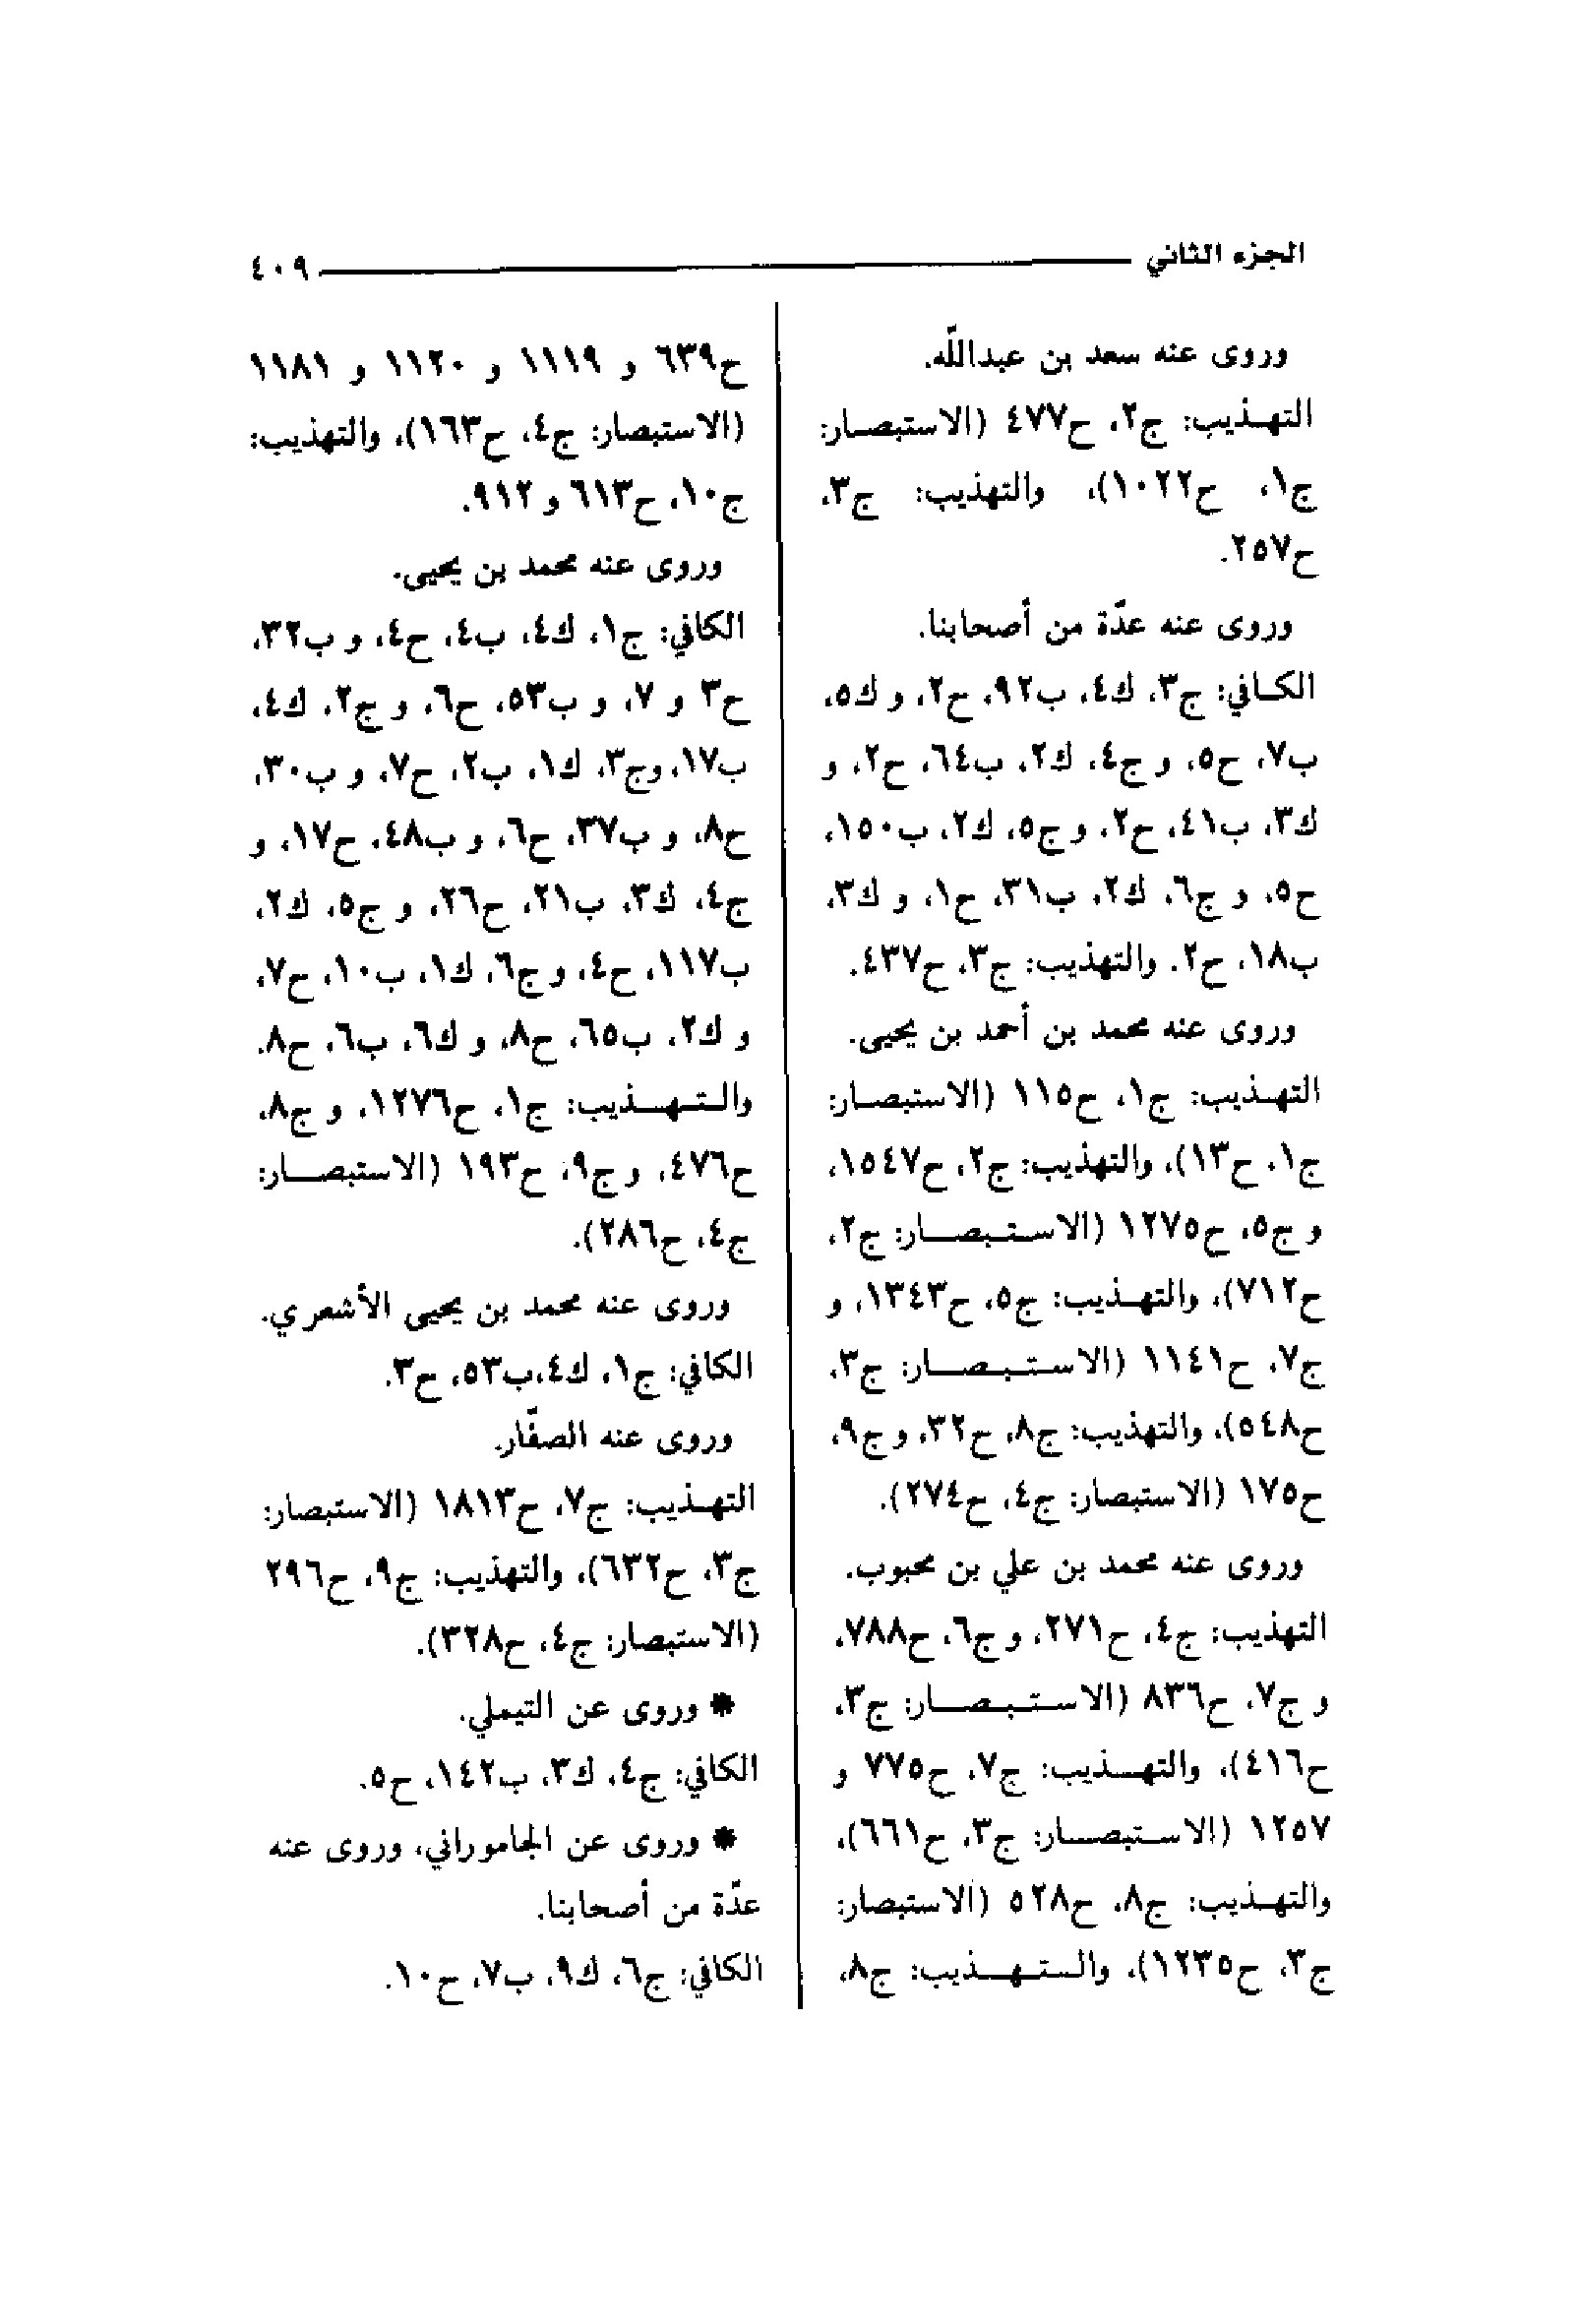 الجزء الثاني ٤٠٩
وروى عنه سعد بن عبدالله.
التهذيب: ج٢، ح٤٧٧ (الاستبصار:
ج١، ح١٠٢٢)، والتهذيب: ج٣،
ح٢٥٧.
وروى عنه عدّة من أصحابنا.
الكافي: ج٣، ك٤، ب٩٢، ح٢، و ك٥،
ب٧، ح٥، و ج٤، ك٢، ب٦٤، ح٢، و
ك٣، ب٤١، ح٢، و ج٥، ك٢، ب١٥٠،
ح٥، و ج٦، ك٢، ب٣١، ح١، و ك٣،
ب١٨، ح٢. والتهذيب: ج٣، ح٤٣٧.
وروى عنه محمد بن أحمد بن يحيى.
التهذيب: ج١، ح١١٥ (الاستبصار:
ج١، ح١٣)، والتهذيب: ج٢، ح١٥٤٧،
و ج٥، ح١٢٧٥ (الاستبصار: ج٢،
ح٧١٢)، والتهذيب: ج٥، ح١٣٤٣، و
ج٧، ح١١٤١ (الاستبصار: ج٣،
ح٥٤٨)، والتهذيب: ج٨، ح٣٢، و ج٩،
ح١٧٥ (الاستبصار: ج٤، ح٢٧٤).
وروى عنه محمد بن علي بن محبوب.
التهذيب: ج٤، ح٢٧١، و ج٦، ح٧٨٨،
و ج٧، ح٨٣٦ (الاستبصار: ج٣،
ح٤١٦)، والتهذيب: ج٧، ح٧٧٥ و
١٢٥٧ (الاستبصار: ج٣، ح٦٦١)،
والتهذيب: ج٨، ح٥٢٨ (الاستبصار:
ج٣، ح١٢٣٥)، والتهذيب: ج٨،
ح٦٣٩ و ١١١٩ و ١١٢٠ و ١١٨١
(الاستبصار: ج٤، ح١٦٣)، والتهذيب:
ج١٠، ح٦١٣ و ٩١٢.
وروى عنه محمد بن يحيى.
الكافي: ج١، ك٤، ب٤، ح٤، و ب٣٢،
ح٣ و ٧، و ب٥٣، ح٦، و ج٢، ك٤،
ب١٧، وج٣، ك١، ب٢، ح٧، و ب٣٠،
ح٨، و ب٣٧، ح٦، و ب٤٨، ح١٧، و
ج٤، ك٣، ب٢١، ح٢٦، و ج٥، ك٢،
ب١١٧، ح٤، و ج٦، ك١، ب١٠، ح٧،
و ك٢، ب٦٥، ح٨، و ك٦، ب٦، ح٨.
والتهذيب: ج١، ح١٢٧٦، و ج٨،
ح٤٧٦، و ج٩، ح١٩٣ (الاستبصار:
ج٤، ح٢٨٦).
وروى عنه محمد بن يحيى الأشعري.
الكافي: ج١، ك٤،ب٥٣، ح٣.
وروى عنه الصفّار.
التهذيب: ج٧، ح١٨١٣ (الاستبصار:
ج٣، ح٦٣٢)، والتهذيب: ج٩، ح٢٩٦
(الاستبصار: ج٤، ح٣٢٨).
* وروى عن التيملي.
الكافي: ج٤، ك٣، ب١٤٢، ح٥.
* وروى عن الجاموراني، وروى عنه
عدّة من أصحابنا.
الكافي: ج٦، ك٩، ب٧، ح١٠.